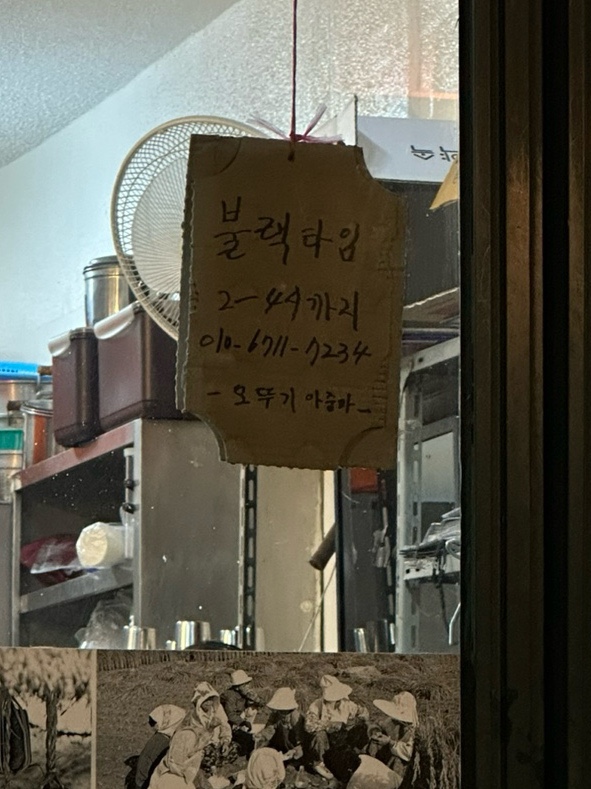 블랙타임
2-4시까지
010-6711-7234
- 오뚜기 아줌마 -